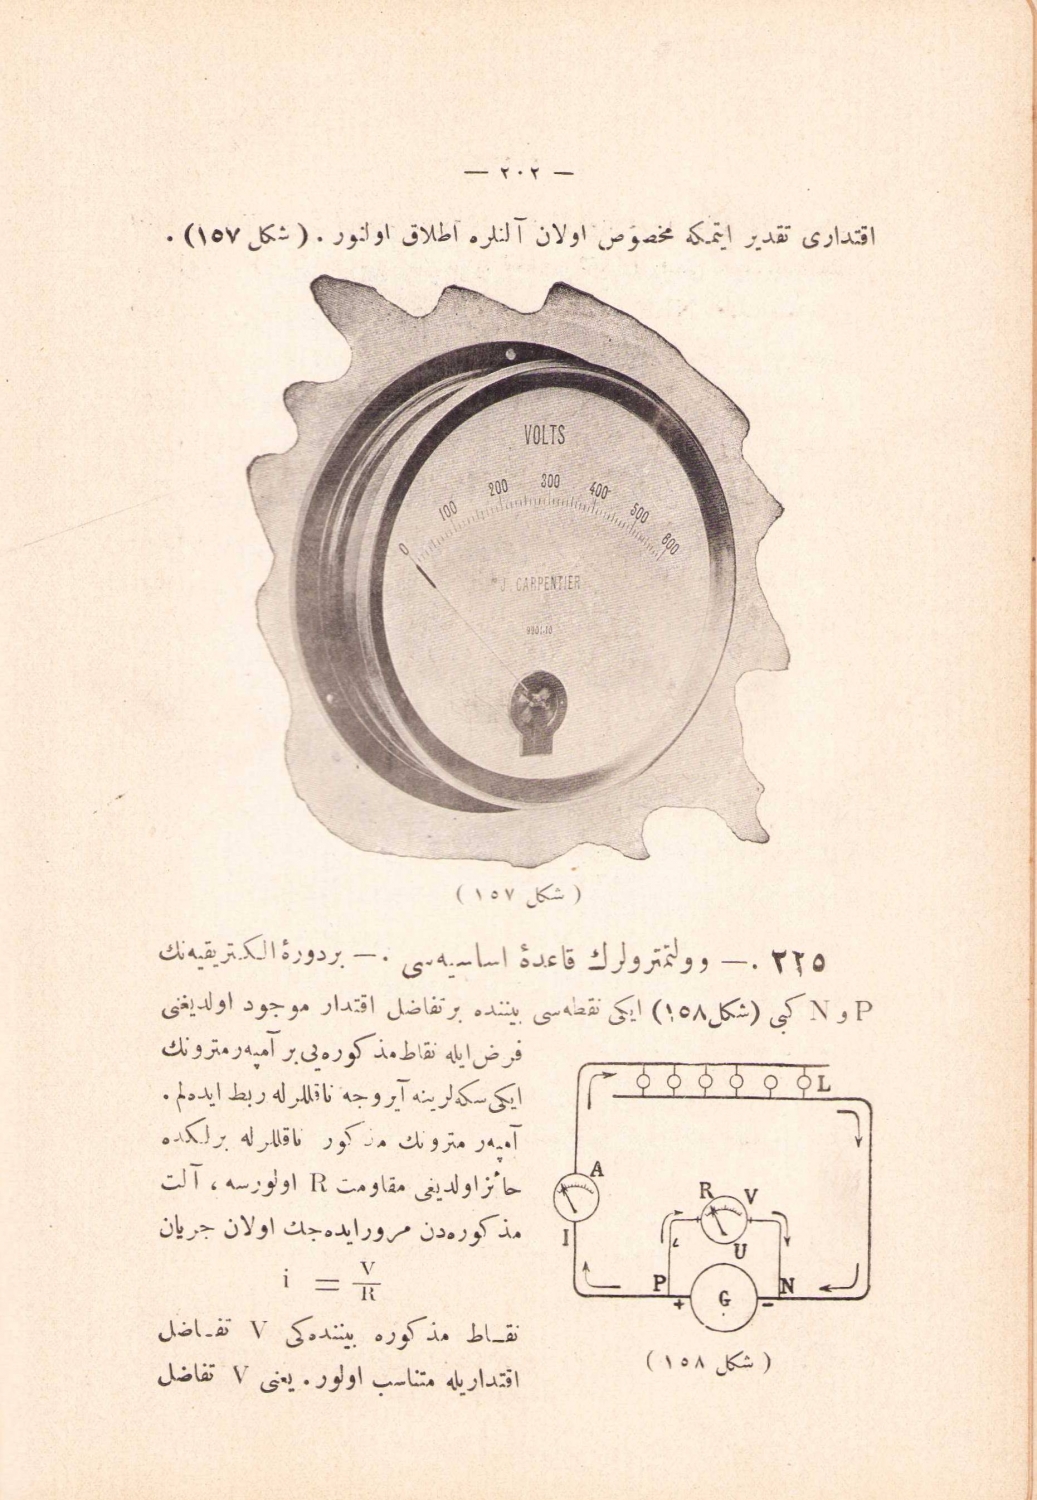 — ٢٠٢ —
اقتداری تقدیر ایتمکه مخصوص اولان آلتلره اطلاق اولنور . ( شکل ١٥٧ ) .
VOLTS
0 100 200 300 400 500 600
J. CARPENTIER
( شکل ١٥٧ )
٢٢٥ . — وولتمترولرك قاعدهٔ اساسیه‌سی . — بر دورهٔ الکتریقیه‌نك
P و N کبی (شکل ١٥٨) ایکی نقطه‌سی بیننده بر تفاضل اقتدار موجود اولدیغنی
فرض ایله نقاط مذکوره‌یی بر آمپه‌رمترونك
ایکی سکه‌لرینه آیروجه ناقللرله ربط ایده‌لم .
آمپه‌ر مترونك مذکور ناقللرله برلکده
حائز اولدیغی مقاومت R اولورسه ، آلت
مذکوره‌دن مرور ایده‌جك اولان جریان
i = V/R
نقـاط مذکوره بیننده‌کی V تفـاضل
اقتداریله متناسب اولور . یعنی V تفاضل
L
A
R V
I
U
P N
+ G −
( شکل ١٥٨ )